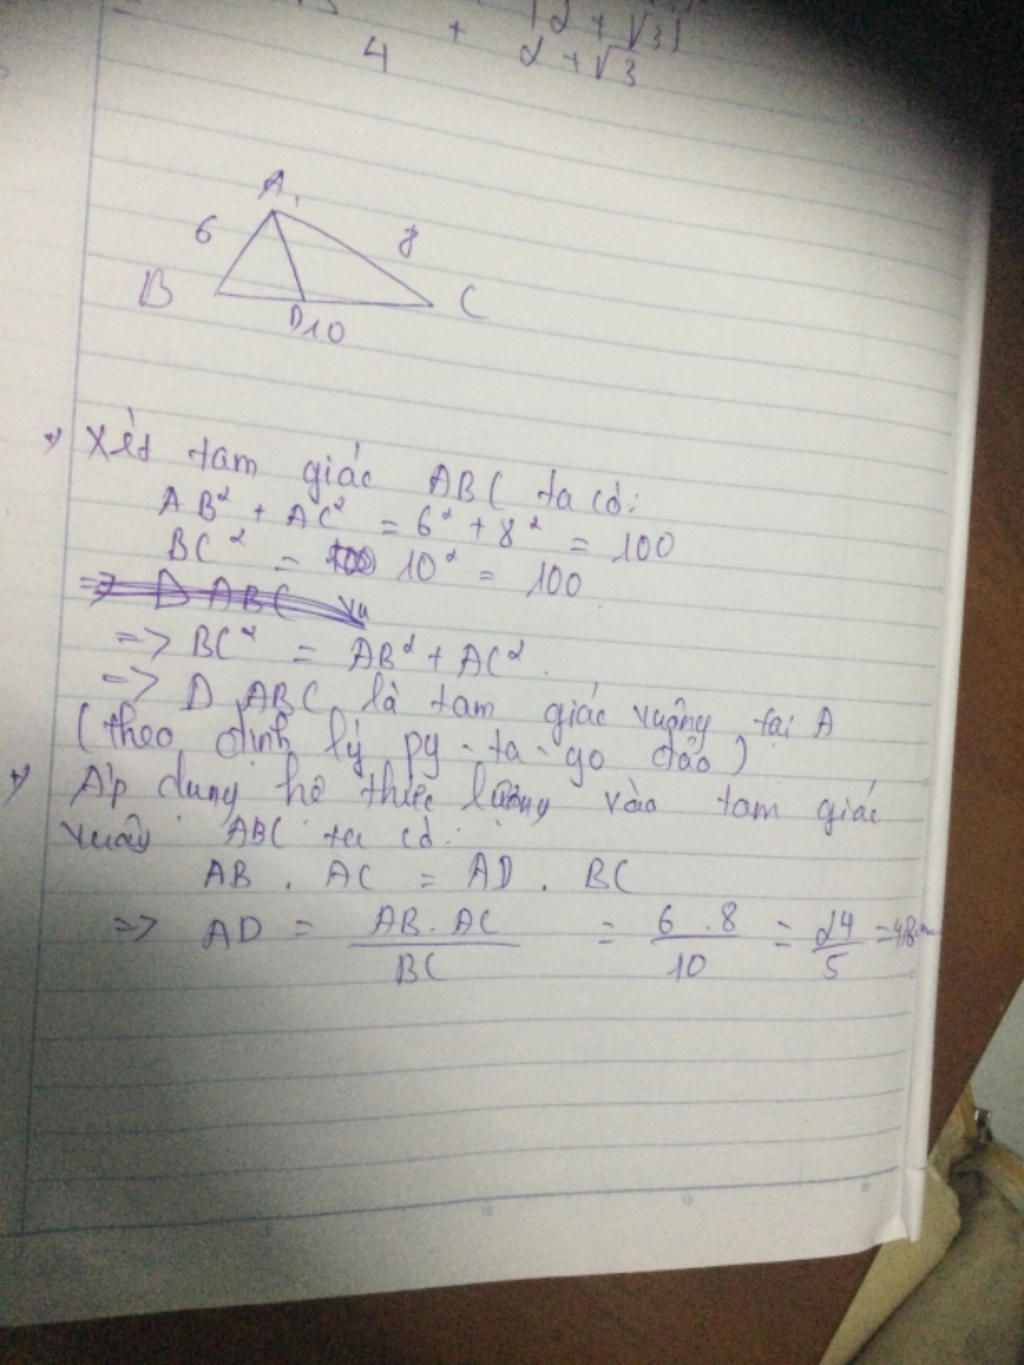 4 + 2 + √3
A
6 8
B C
D 10
Xét tam giác ABC ta có:
AB² + AC² = 6² + 8² = 100
BC² = 10² = 100
=> BC² = AB² + AC².
=> D ABC là tam giác vuông tại A
(theo định lý py-ta-go đảo)
Áp dụng hệ thức lượng vào tam giác
vuông ABC ta có:
AB . AC = AD . BC
=> AD = AB. AC / BC = 6 . 8 / 10 = 24 / 5 = 4,8cm